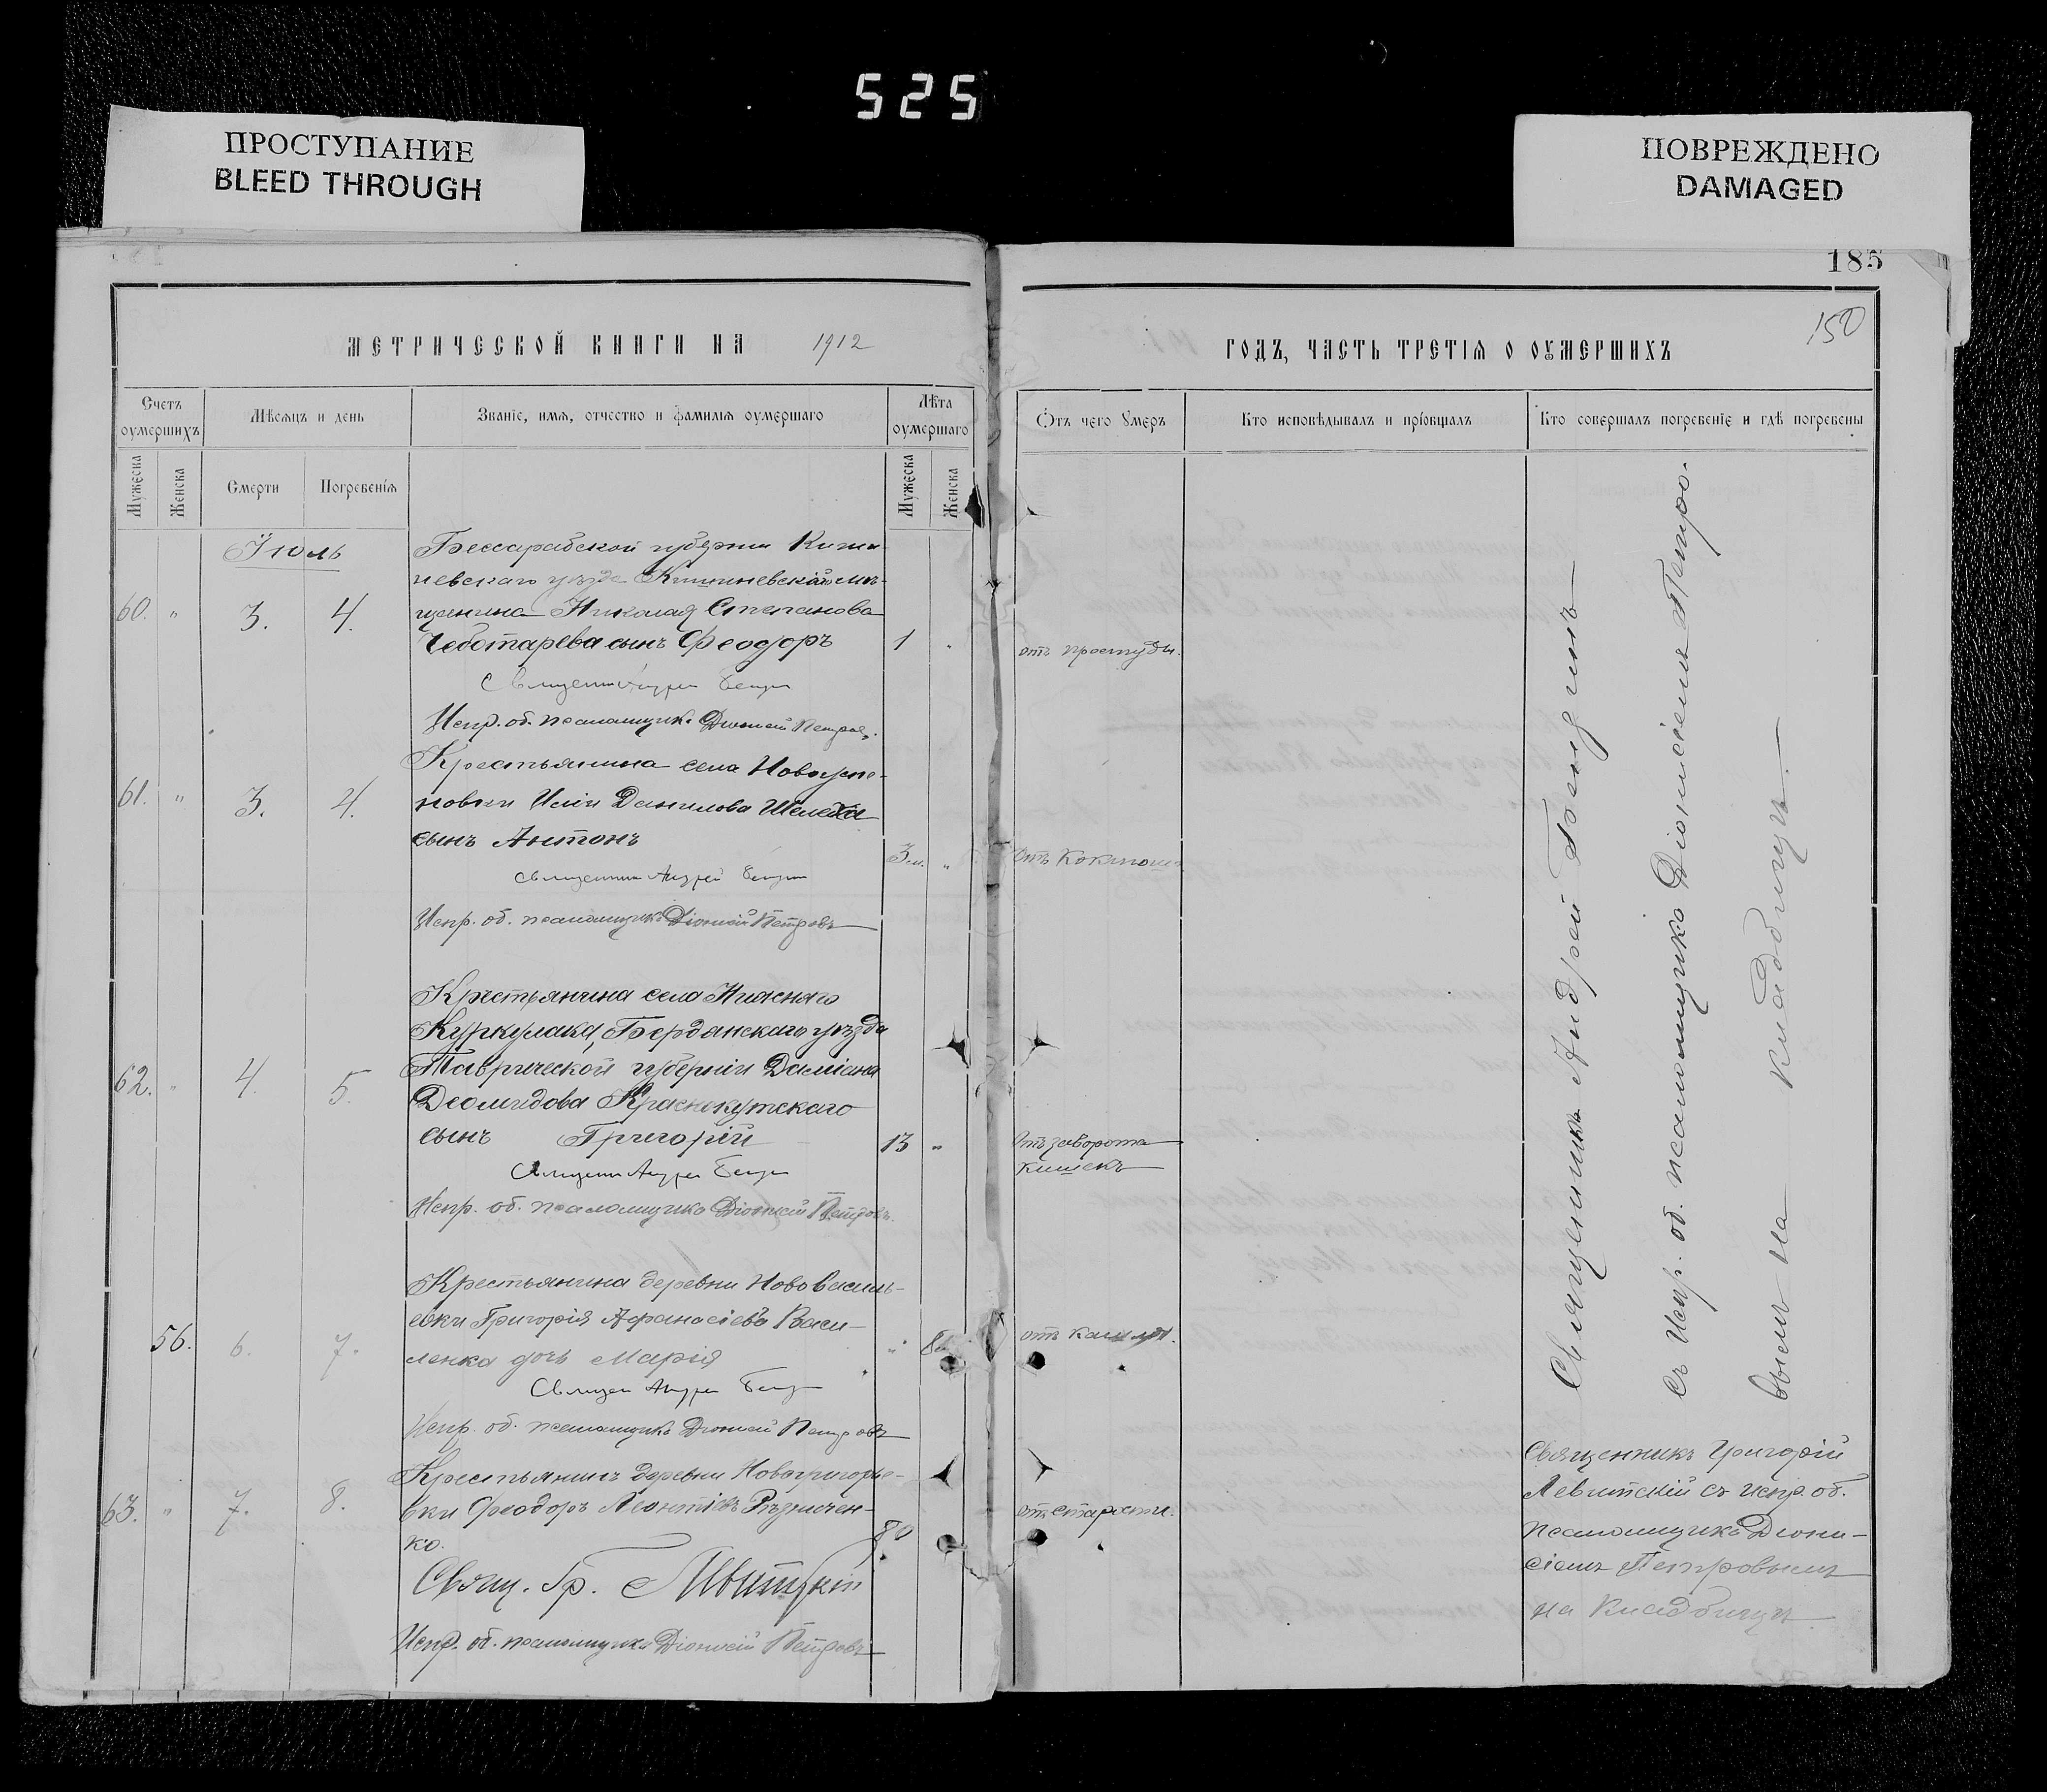 525
ПРОСТУПАНИЕ
BLEED THROUGH
ПОВРЕЖДЕНО
DAMAGED
185
150
МЕТРИЧЕСКОЙ КНИГИ НА 1912
ГОДЪ, ЧАСТЬ ТРЕТІЯ О ОУМЕРШИХЪ
Счетъ оумершихъ
Мѣсяцъ и день
Званіе, имя, отчество и фамилія оумершаго
Лѣта оумершаго
Отъ чего умеръ
Кто исповѣдывалъ и пріобщалъ
Кто совершалъ погребеніе и гдѣ погребены
Мужеска
Женска
Смерти
Погребенія
Мужеска
Женска
Іюль
Бессарабской губерніи Киши-
невскаго уѣзда Кишиневскаго мѣ-
60. " 3. 4. щанина Николая Степанова
Чеботарева сынъ Феодоръ 1 " отъ простуды.
Священникъ Андрей
Испр. об. псаломщика Діонисій Петровъ.
Крестьянина села Новоуспе-
61. " 3. 4. новки Иліи Данилова Шелеха
сынъ Антонъ
3 м. " отъ коклюша
Священникъ Андрей
Испр. об. псаломщика Діонисій Петровъ
Крестьянина села Нижняго
Куркулака, Бердянскаго уѣзда
62. " 4. 5. Таврической губерніи Даміана
Деомидова Краснокутскаго
сынъ Григорій 13 " Отъ заворота
кишекъ
Священникъ Андрей
Испр. об. псаломщика Діонисій Петровъ.
Крестьянина деревни Нововасиль-
евки Григорія Афанасіева Васи-
56. 6. 7. ленка дочь Марія " отъ кашля.
Священ Андрей
Испр. об. псаломщика Діонисій Петровъ
Крестьянинъ деревни Новогригорье-
63. " 7. 8. вки Феодоръ Леонтіевъ
ко. 80 отъ старости.
Свящ. Гр. Левитскій
Испр. об. псаломщика Діонисій Петровъ
Священникъ Андрей
съ Испр. об. псаломщика Діонисіемъ Петро-
вымъ на кладбищѣ.
Священникъ Григорій
Левитскій съ испр. об.
псаломщика Діони-
сіемъ Петровымъ
на кладбищѣ